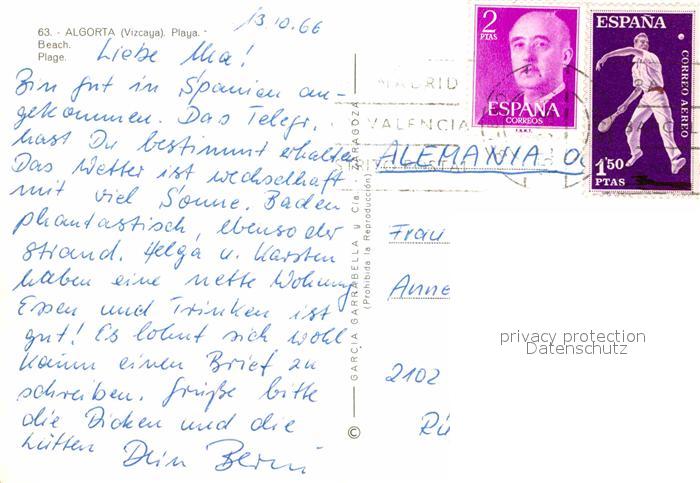 63. - ALGORTA (Vizcaya). Playa.
Beach.
Plage.
13.10.66
Liebe Mia!
Bin gut in Spanien an-
gekommen. Das Telegr.
hast Du bestimmt erhalten
Das Wetter ist wechselhaft
mit viel Sonne. Baden
phantastisch, ebenso der
Strand. Helga u. Karsten
haben eine nette Wohnung
Essen und Trinken ist
gut! Es lohnt sich wohl
kaum einen Brief zu
schreiben. Grüße bitte
die Dicken und die
Lütten Dein Berni
GARCIA GARRABELLA y Cía. - ZARAGOZA
(Prohibida la Reproducción)
©
2
PTAS
ESPAÑA
CORREOS
F.N.M.T.
ESPAÑA
CORREO AEREO
1'50
PTAS
MADRID
VALENCIA
ALEMANIA OC
Frau
Anne
2102
Rü
privacy protection
Datenschutz